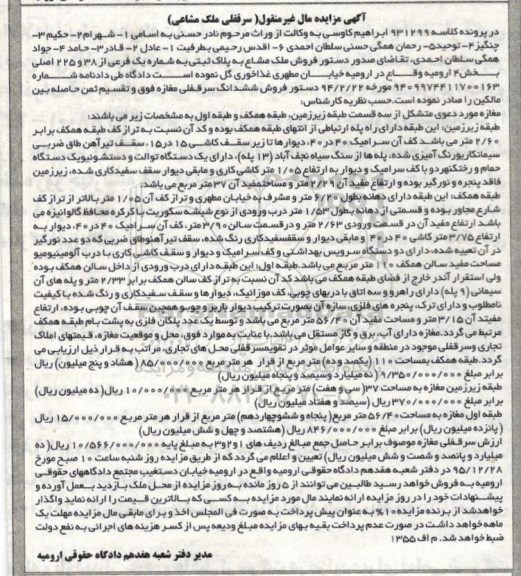 آگهی مزایده مال غیرمنقول( سرقفلی ملک مشاعی)
در پرونده کلاسه ۹۳۱۲۹۹ ابراهیم کاوسی به وکالت از وراث مرحوم نادر حسنی به اسامی ۱- شهرام ۲- حکیم ۳-
چنگیز ۴- توحید ۵- رحمان همگی حسنی سلطان احمدی ۶- اقدس رحیمی بطرفیت ۱- عادل ۲- قادر ۳- حامد ۴- جواد
همگی سلطان احمدی، تقاضای صدور دستور فروش ملک مشاع به پلاک ثبتی به شماره یک فرعی از ۳۸ و ۲۲۵ اصلی
بخش ۴ ارومیه واقع در ارومیه خیابان مطهری غذاخوری گل نموده است دادگاه طی دادنامه شماره
۹۴۰۹۹۷۴۴۱۱۷۰۰۱۶۳ مورخه ۹۴/۲/۲۲ دستور فروش ششدانگ سرقفلی مغازه فوق و تقسیم ثمن حاصله بین
مالکین را صادر نموده است.حسب نظریه کارشناس:
مغازه مورد دعوی متشکل از سه قسمت طبقه زیرزمین، طبقه همکف و طبقه اول به مشخصات زیر می باشند:
طبقه زیرزمین: این طبقه دارای راه پله ارتباطی از انتهای طبقه همکف بوده و کد آن نسبت به تراز کف طبقه همکف برابر
۲/۶۰ متر می باشد. کف آن سرامیک ۴۰ در ۴۰، دیوارها تا زیر سقف کاشی ۱۵ در ۱۵، سقف تیرآهن طاق ضربی
سیمانکاریو رنگ آمیزی شده، پله ها از سنگ سیاه نجف آباد (۱۳ پله)، دارای یک دستگاه توالت و دستشویی و یک دستگاه
حمام و رختکن هردو با کف سرامیک و دیوار به ارتفاع ۱/۰۵ متر کاشی کاری و مابقی دیوار سقف سفیدکاری شده، زیرزمین
فاقد پنجره و نورگیر بوده و ارتفاع مفید آن ۲/۲۹ متر و مساحت مفید آن ۳۷ متر مربع می باشد.
طبقه همکف: این طبقه دارای دهانه بطول ۶/۲۰ متر و مشرف به خیابان مطهری و تراز کف آن ۱/۰۵ متر بالاتر از تراز کف
شارع مجاور بوده و قسمتی از دهانه بطول ۱/۵۳ متر درب ورودی از نوع شیشه سکوریت با کرکره محافظ گالوانیزه می
باشد. ارتفاع مفید آن در قسمت ورودی ۲/۶۳ متر و در قسمت سالن ۳/۹۰ متر، کف آن سرامیک ۴۰ در ۴۰، دیوار به
ارتفاع ۳/۷۵ متر کاشی ۴۰ در ۴۰ و مابقی دیوار و سقف سفیدکاری رنگ شده، سقف تیرآهن و طاق ضربی که دو عدد نورگیر
در آن تعبیه شده، دارای دو دستگاه سرویس بهداشتی و کف سرامیک و دیوار و سقف کاشی کاری با درب آلومینیومی و
مساحت مفید سالن همکف ۱۱۰ متر مربع می باشد. طبقه اول: این طبقه دارای درب ورودی از داخل سالن همکف بوده
ولی استقرار آن در خارج از فضای طبقه همکف می باشد کد آن نسبت به تراز کف سالن همکف برابر ۲/۳۳ متر و پله های آن
سیمانی (۹ پله) دارای راهرو و سه اتاق با دربهای چوبی، کف موزائیک، دیوارها و سقف سفیدکاری و رنگ شده با کیفیت
نامطلوب و دارای ترک، پنجره های فلزی، سازه آن بصورت ترکیب دیوار باربر و چوب و همچنین سقف آن چوبی بوده، ارتفاع
مفید آن ۳/۱۵ متر و مساحت مفید آن ۵۶/۴۰ متر مربع می باشد و توسط یک عدد پلکان فلزی به پشت بام طبقه همکف
مرتبط می گردد. مغازه دارای آب، برق و گاز مستقل می باشد. با عنایت به موارد فوق، محل و موقعیت مغازه، قیمتهای املاک
تجاری و سرقفلی موجود در منطقه و سایر عوامل موثر در تقویم سرقفلی محل های تجاری، مراتب به قرار ذیل ارزیابی می
گردد. طبقه همکف بمساحت ۱۱۰ (یکصد و ده) متر مربع از قرار هر متر مربع ۸۵/۰۰۰/۰۰۰ ( هشتاد و پنج میلیون) ریال
برابر مبلغ ۹/۳۵۰/۰۰۰/۰۰۰ (نه میلیارد و سیصد و پنجاه میلیون ریال)
طبقه زیرزمین مغازه به مساحت ۳۷ (سی و هفت) متر مربع از قرار هر متر مربع ۱۰/۰۰۰/۰۰۰ ریال (ده میلیون ریال)
برابر مبلغ ۳۷۰/۰۰۰/۰۰۰ ریال (سیصد و هفتاد میلیون ریال)
طبقه اول مغازه به مساحت ۵۶/۴۰ متر مربع (پنجاه و شش و چهاردهم) متر مربع از قرار هر متر مربع ۱۵/۰۰۰/۰۰۰ ریال
( پانزده میلیون ریال) برابر مبلغ ۸۴۶/۰۰۰/۰۰۰ ریال (هشتصد و چهل و شش میلیون ریال)
ارزش سرقفلی مغازه موصوف برابر حاصل جمع مبالغ ردیف های ۱ و ۲ و ۳ به مبلغ پایه ۱۰/۵۶۶/۰۰۰/۰۰۰ ریال (ده
میلیارد و پانصد و شصت و شش میلیون ریال) تعیین و اعلام می گردد که از طریق مزایده روز شنبه ساعت ۱۰ صبح مورخ
۹۵/۱۲/۲۸ در دفتر شعبه هفدهم دادگاه حقوقی ارومیه واقع در ارومیه خیابان دستغیب مجتمع دادگاههای حقوقی
ارومیه به فروش خواهد رسید طالبین می توانند از ۵ روز مانده به روز مزایده از محل ملک بازدید بعمل آورده و
پیشنهادات خود را در روز مزایده ارائه نمایند مال مورد مزایده به کسی که بالاترین قیمت را ارائه نماید واگذار
خواهد شد از برنده مزایده ۱۰% به عنوان پیش پرداخت به صورت فی المجلس اخذ و برای مابقی مال مزایده مهلت یک
ماهه خواهد داشت در صورت عدم پرداخت بقیه بهای مزایده مبلغ ودیعه پس از کسر هزینه های اجرائی به نفع دولت
ضبط خواهد شد. م الف ۱۳۵۵
مدیر دفتر شعبه هفدهم دادگاه حقوقی ارومیه